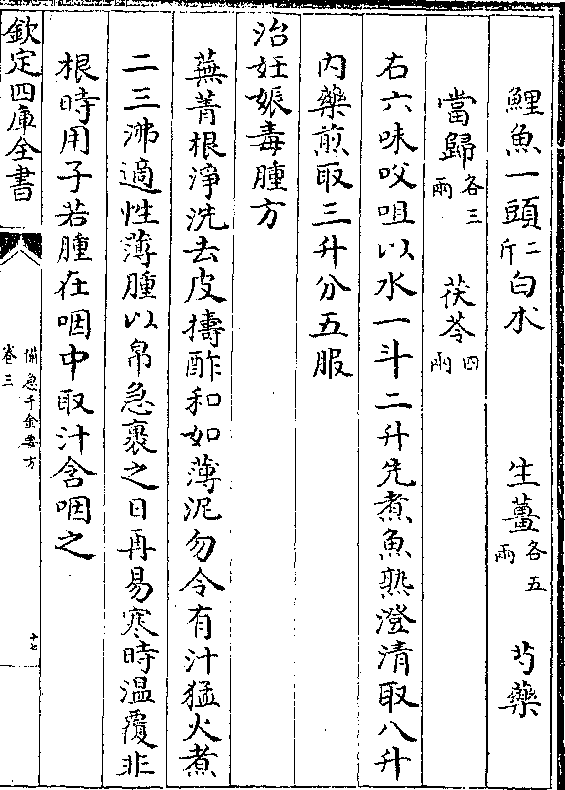 鯉魚一頭二斤白水　生薑各五兩　芍藥
當歸各三兩　茯苓四兩
右六味㕮咀以水一斗二升先煮魚熟澄清取八升
内藥煎取三升分五服
治妊娠毒腫方
蕪菁根淨洗去皮擣酢和如薄泥勿令有汁猛火煮
二三沸適性薄腫以帛急裹之日再易寒時温覆非
根時用子若腫在咽中取汁含咽之
欽定四庫全書
備急千金要方
卷三
十七